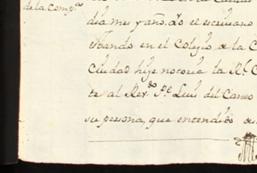 de la comp.ª
dia mes y año. Yo el escrivano
estando en el Colegio de la C
Ciudad hize notoria la Rl C
te al Rev.do Pe Luis del Canso
su persona, que entendido de